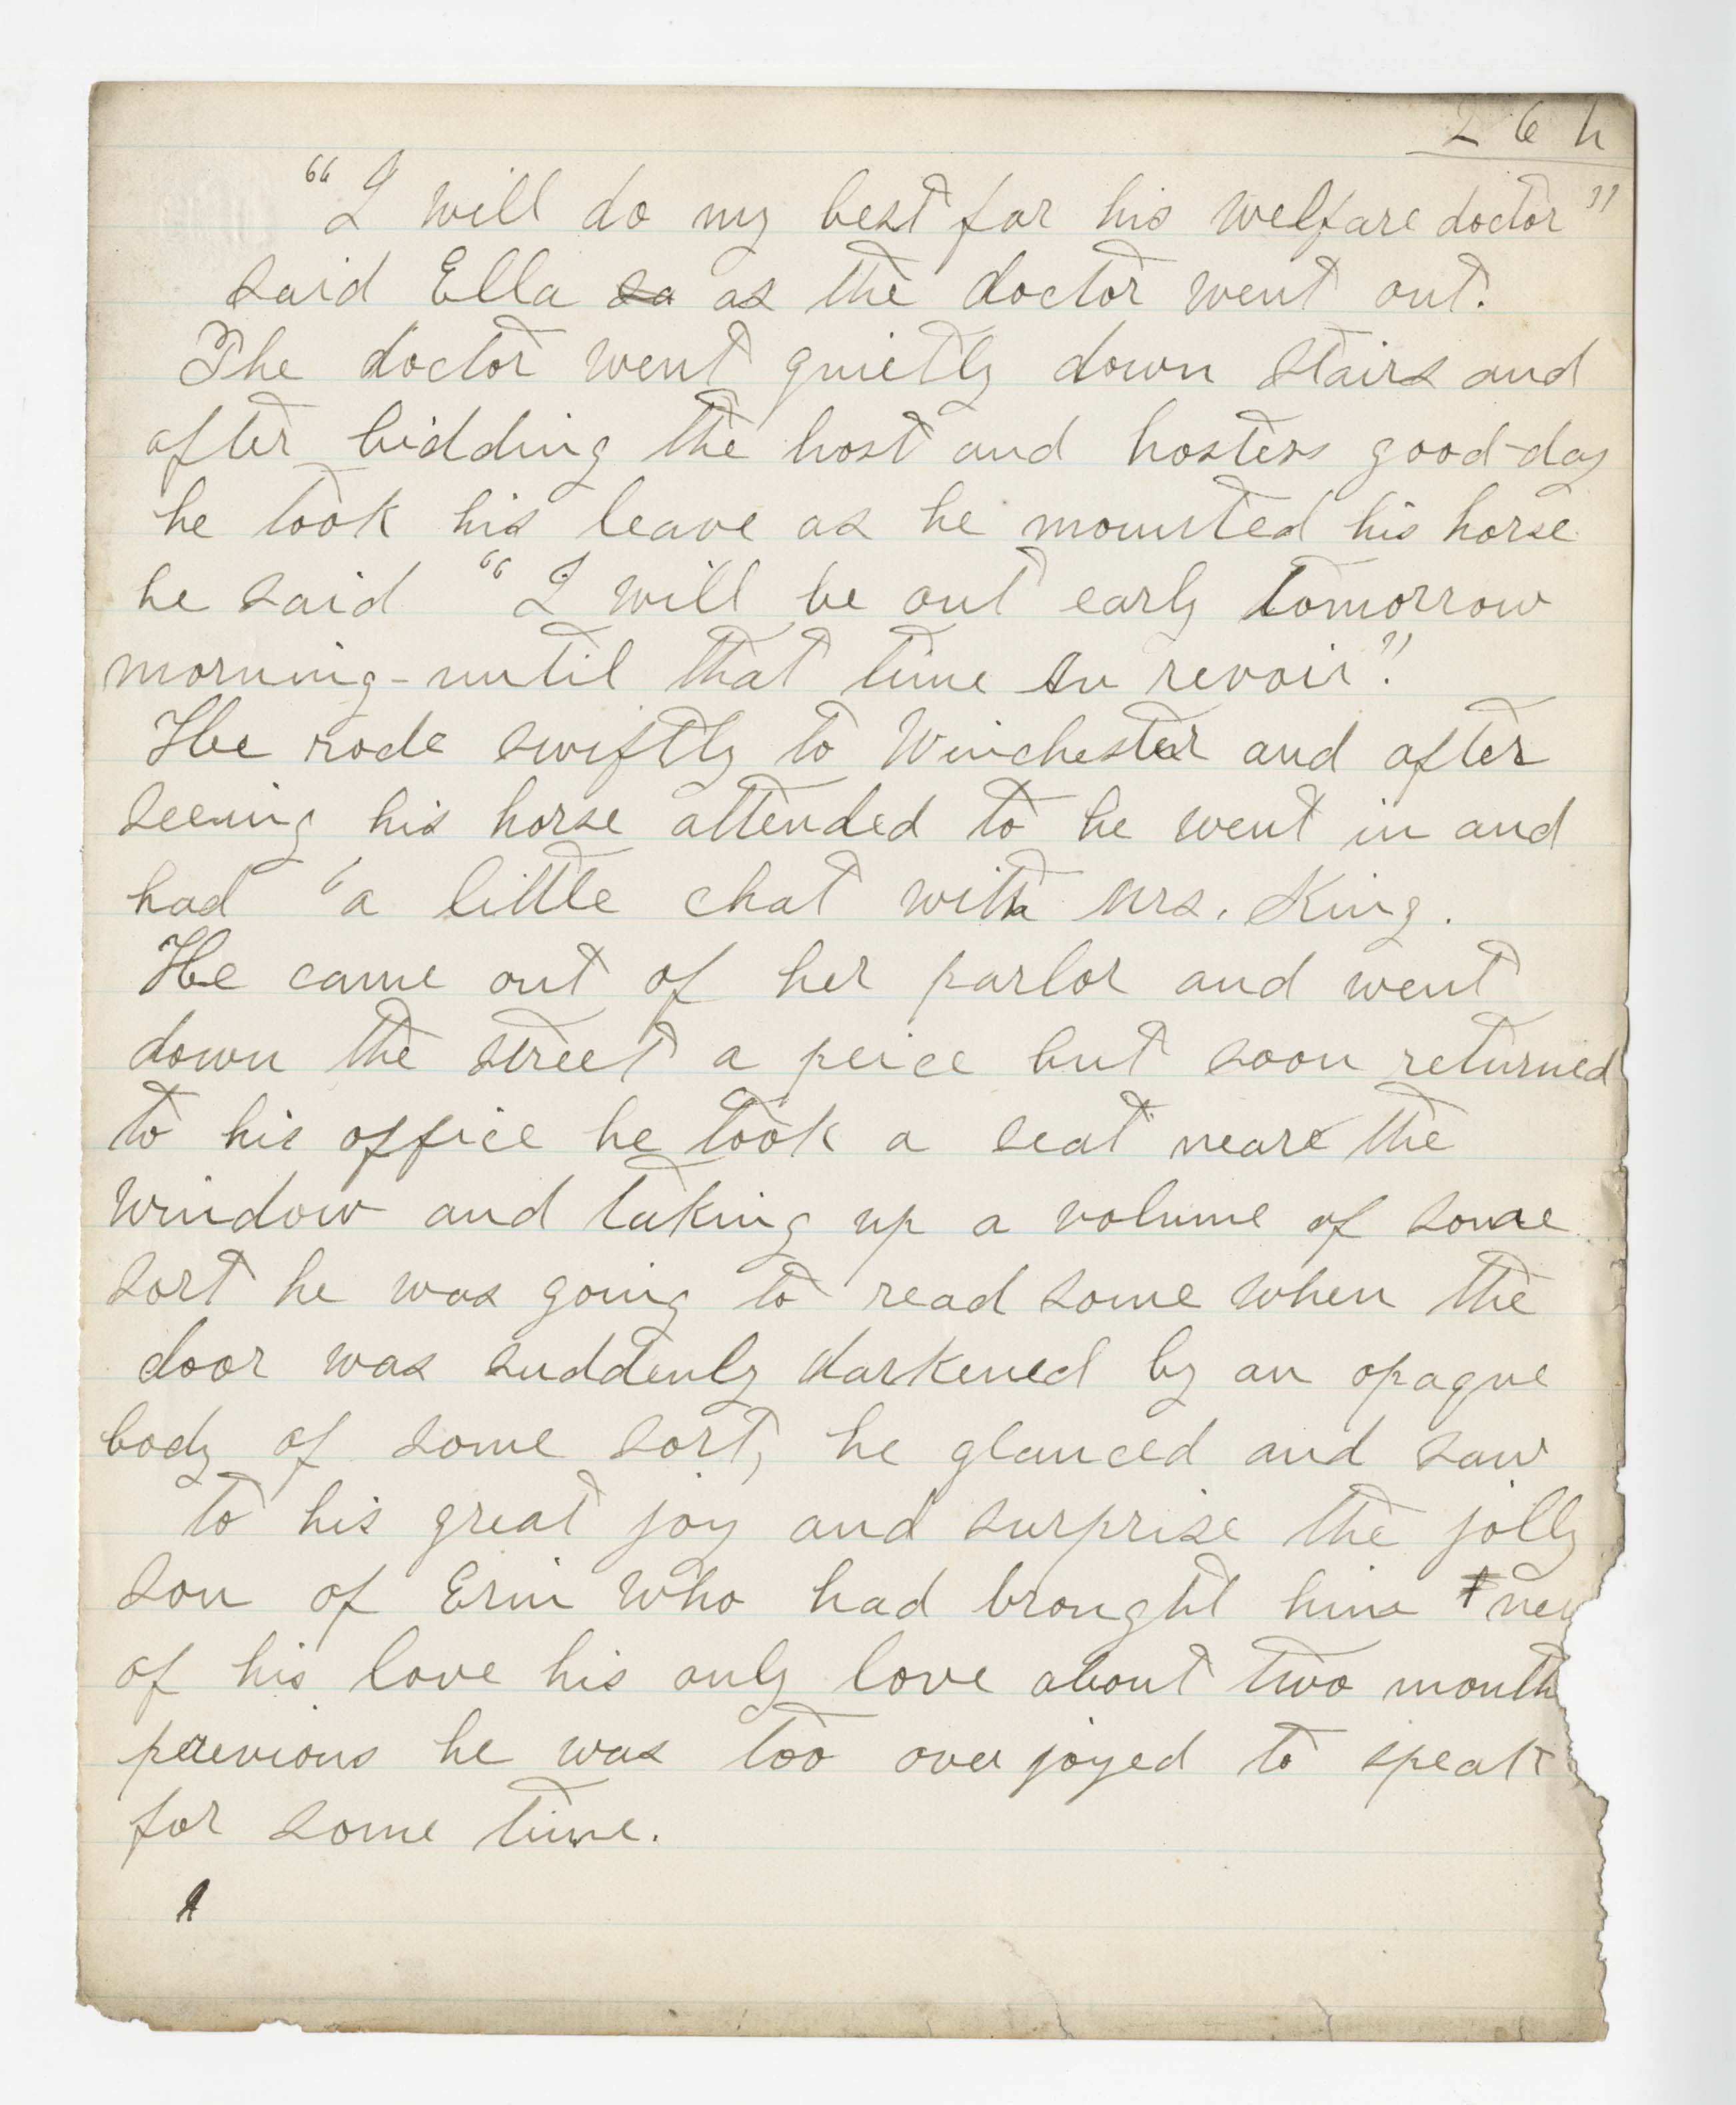 26h
"I will do my best for his welfare doctor"
said Ella sa as the doctor went out.
The doctor went quietly down stairs and
after bidding the host and hostess good-day
he took his leave as he mounted his horse
he said "I will be out early tomorrow
morning - until that time au revoir".
He rode swiftly to Winchester and after
seeing his horse attended to he went in and
had "a little chat with Mrs. King.
He came out of her parlor and went
down the street a peice but soon returned
to his office he took a seat near the
window and taking up a volume of some
sort he was going to read some when the
door was suddenly darkened by an opaque
body of some sort, he glanced and saw
to his great joy and surprise the jolly
son of Erin who had brought him new
of his love his only love about two month
previous he was too over joyed to speak
for some time.